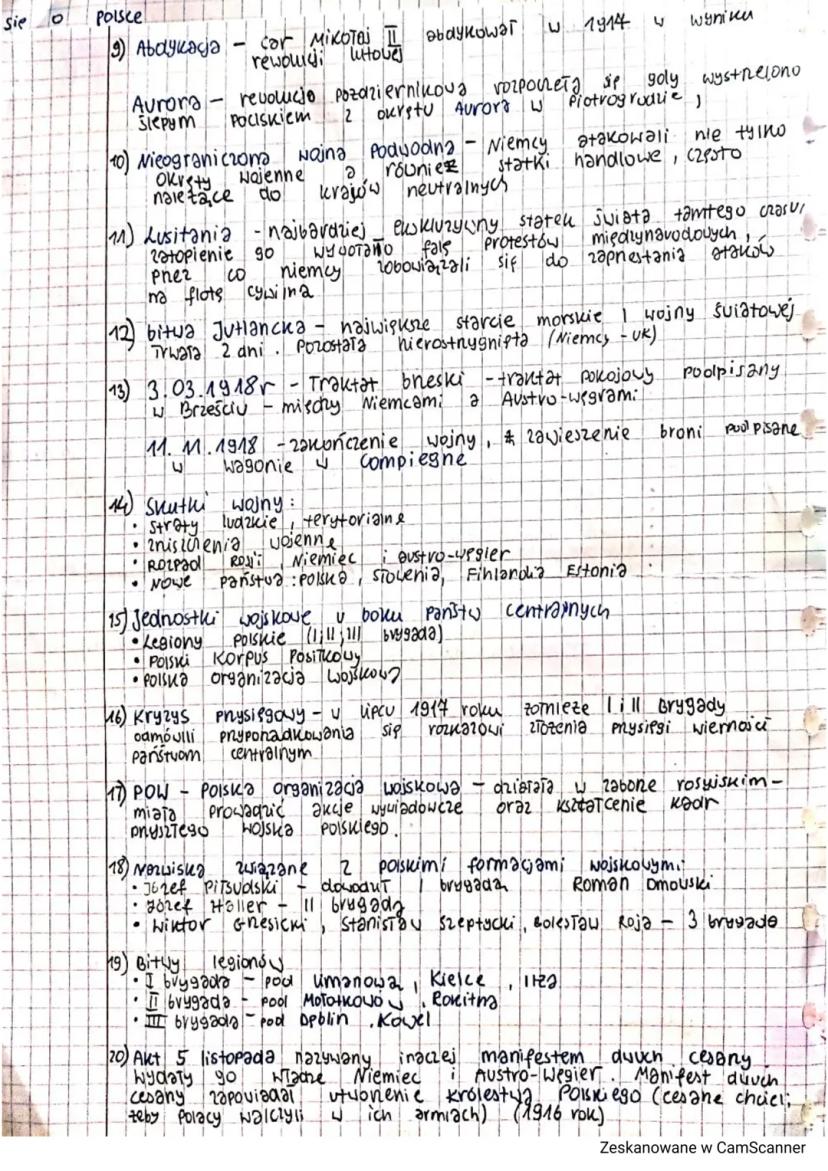 się o polsce
9) Abdykacja – car Mikołaj II abdykował w 1914 w wyniku
rewolucji lutowej
Aurora – rewolucja październikowa rozpoczęła się gdy wystrzelono
ślepym pociskiem z okrętu Aurora w Piotrogrudzie,
10) Nieograniczona wojna podwodna – Niemcy atakowali nie tylko
okręty wojenne a również statki handlowe, często
należące do krajów neutralnych
11) Lusitania - najbardziej ekskluzywny statek świata tamtego czasu,
zatopienie go wywołało falę protestów międzynarodowych,
przez co niemcy zobowiązali się do zaprzestania ataków
na flotę cywilną
12) bitwa Jutlancka – największe starcie morskie I wojny światowej
Trwała 2 dni. Pozostała nierostrzygnięta (Niemcy - UK)
13) 3.03.1918r – Traktat brzeski - traktat pokojowy podpisany
w Brześciu – między Niemcami a Austro-węgrami
11.11.1918 - zakończenie wojny, zawieszenie broni podpisane
w wagonie w Compiegne
14) Skutki wojny:
• straty ludzkie, terytorialne
• zniszczenia wojenne
• Rozpad Rosji, Niemiec i austro-węgier
• Nowe państwa: polska, słowenia, Finlandia Estonia
15) Jednostki wojskowe u boku państw centralnych
• Legiony polskie (I, II, III brygada)
• Polski Korpus Posiłkowy
• Polska organizacja wojskowa
16) Kryzys przysięgowy – w lipcu 1917 roku żołnieże I i II Brygady
odmówili przyponadkowania się rozkazowi złożenia przysięgi wierności
państwom centralnym
17) POW – Polska organizacja wojskowa – działała w zaborze rosyjskim –
miała prowadzić akcje wywiadowcze oraz kształcenie kadr
przyszłego wojska polskiego.
18) Nazwiska związane z polskimi formacjami wojskowymi:
• Józef Piłsudski – dowódca I brygada Roman Dmowski
• Józef Haller – II brygada
• Wiktor Grzesicki, Stanisław Szeptycki, Bolesław Roja – 3 brygada
19) Bitwy legionów
• I brygada – pod Limanową, Kielce, Iłża
• II brygada – pod Mołotkowów, Rokitna
• III brygada – pod Dęblin, Kowel
20) Akt 5 listopada nazywany inaczej manifestem dwuch cesarzy
wydały go władze Niemiec i Austro-Węgier. Manifest dwuch
cesarzy zapowiadał utworzenie królestwa Polskiego (cesarze chcieli,
żeby polacy walczyli w ich armiach) (1916 rok)
Zeskanowane w CamScanner